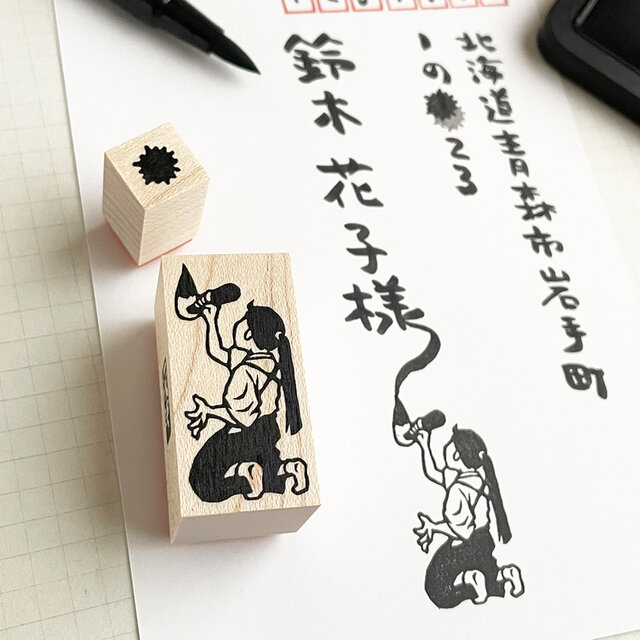 北海道青森市岩手町
1の 23
鈴木花子様